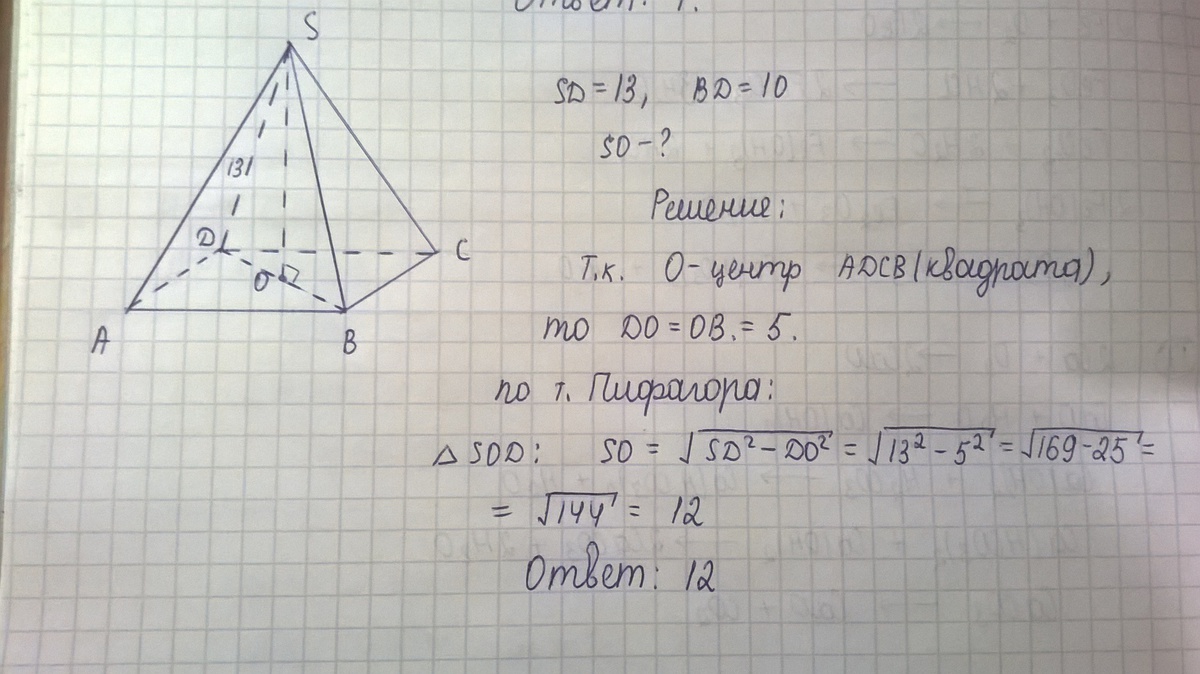 Ответ:
S
SD = 13, BD = 10
SO - ?
13
Решение:
D
C
O
Т.к. O - центр ADCB (квадрата),
A
B
то DO = OB. = 5.
по т. Пифагора:
△ SOD: SO = √SD² - DO² = √13² - 5² = √169 - 25 =
= √144 = 12
Ответ: 12